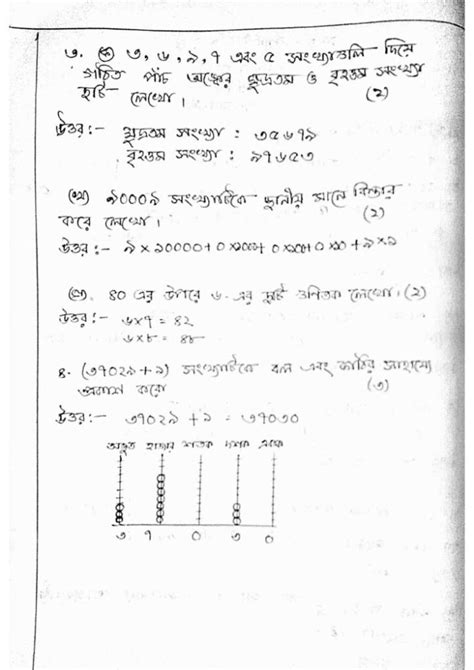 ৩. (ক) ৩, ৬, ৯, ৭ এবং ৫ সংখ্যাগুলি দিয়ে
গঠিত পাঁচ অঙ্কের ক্ষুদ্রতম ও বৃহত্তম সংখ্যা
দুটি লেখো। (২)
উত্তর:- ক্ষুদ্রতম সংখ্যা : ৩৫৬৭৯
বৃহত্তম সংখ্যা : ৯৭৬৫৩
(খ) ৯০০০৯ সংখ্যাটিকে স্থানীয় মানে বিস্তার
করে লেখো। (২)
উত্তর:- ৯×১০০০০+০×১০০০+০×১০০+০×১০+৯×১
(গ). ৪০ এর উপরে ৬-এর দুটি গুণিতক লেখো। (২)
উত্তর:- ৬×৭ = ৪২
৬×৮ = ৪৮
৪. (৩৭০২৯+১) সংখ্যাটিকে বল এবং কাঠির সাহায্যে
প্রকাশ করো (৩)
উত্তর:- ৩৭০২৯+১ = ৩৭০৩০
অযুত হাজার শতক দশক একক
৩ ৭ ০ ৩ ০